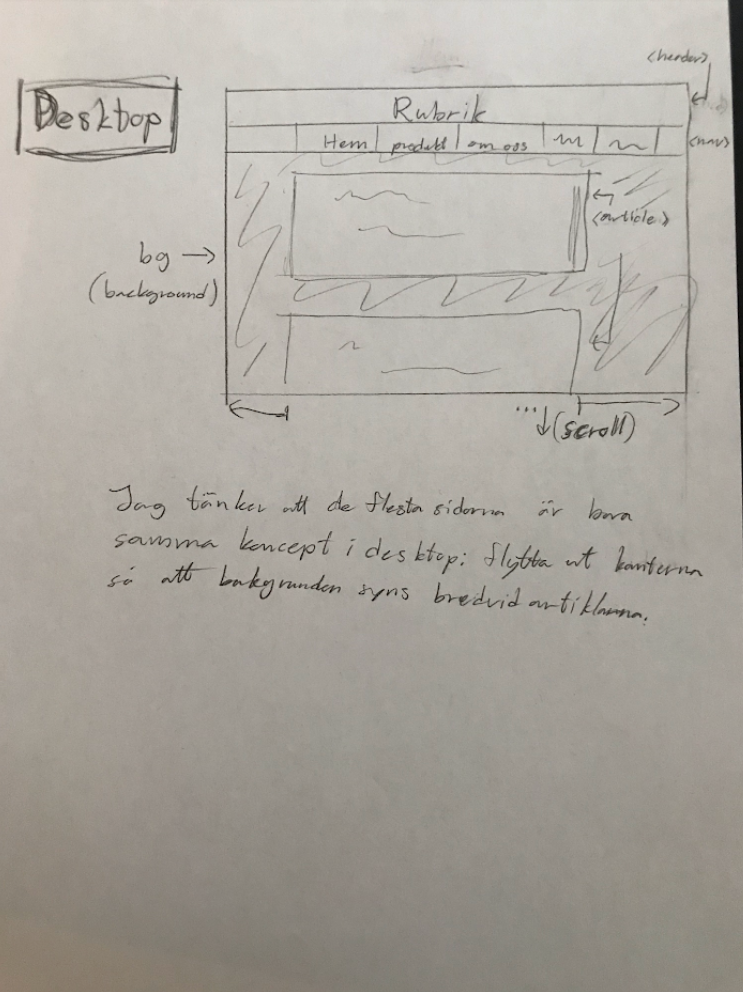 <header>
Desktop
Rubrik
Hem produkt om oss
<nav>
<article>
bg →
(background)
... ↓(scroll)
Jag tänker att de flesta sidorna är bara
samma koncept i desktop: flytta ut kanterna
så att bakgrunden syns bredvid artiklarna.